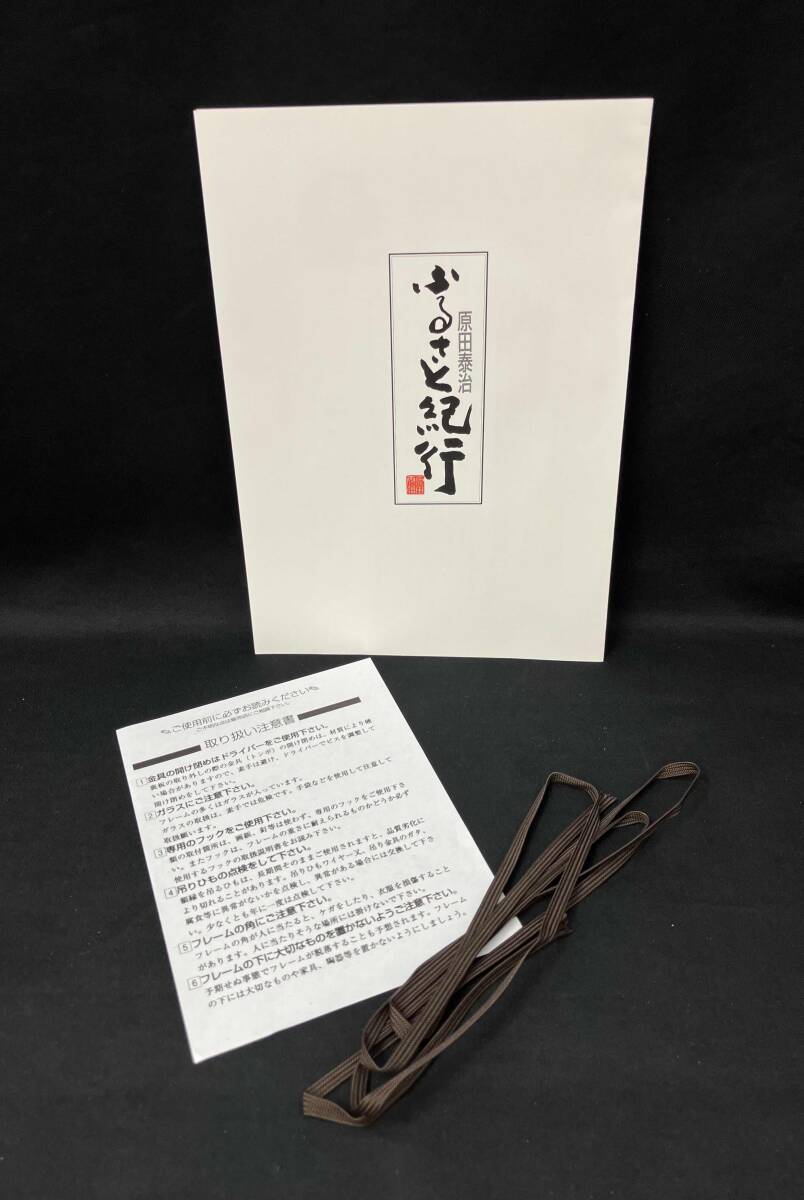 原田泰治
ふるさと紀行
ご使用前に必ずお読みください
取り扱い注意書
1 金具の開け閉めはドライバーをご使用下さい。
裏板の取り外しの際の金具（トンボ）の開け閉めは、材質により硬
い場合がありますので、素手は避け、ドライバーでビスを調整して
開け閉めをして下さい。
2 ガラスにご注意下さい。
フレームの多くはガラスが入っています。
ガラスの取扱は、素手では危険です。手袋などを使用して注意して
取扱願います。
3 専用のフックをご使用下さい。
額の取付箇所は、画鋲、釘等は使わず、専用のフックをご使用下さ
い。またフックは、フレームの重さに耐えられるものかどうか必ず
使用するフックの取扱説明書をお読み下さい。
4 吊りひもの点検をして下さい。
額縁を吊るひもは、長期間そのままご使用されますと、品質劣化に
より切れることがあります。吊りひもワイヤー又、吊り金具のガタ、
腐食等に異常がないかを点検し、異常がある場合には交換して下さ
い。少なくとも年に一度は点検して下さい。
5 フレームの角にご注意下さい。
フレームの角が人に当たると、ケガをしたり、衣服を損傷すること
があります。人に当たりそうな場所には掛けないで下さい。
6 フレームの下に大切なものを置かないようご注意下さい。
予期せぬ事態でフレームが脱落することも予想されます。フレーム
の下には大切なものや家具、陶器等を置かないようにしましょう。